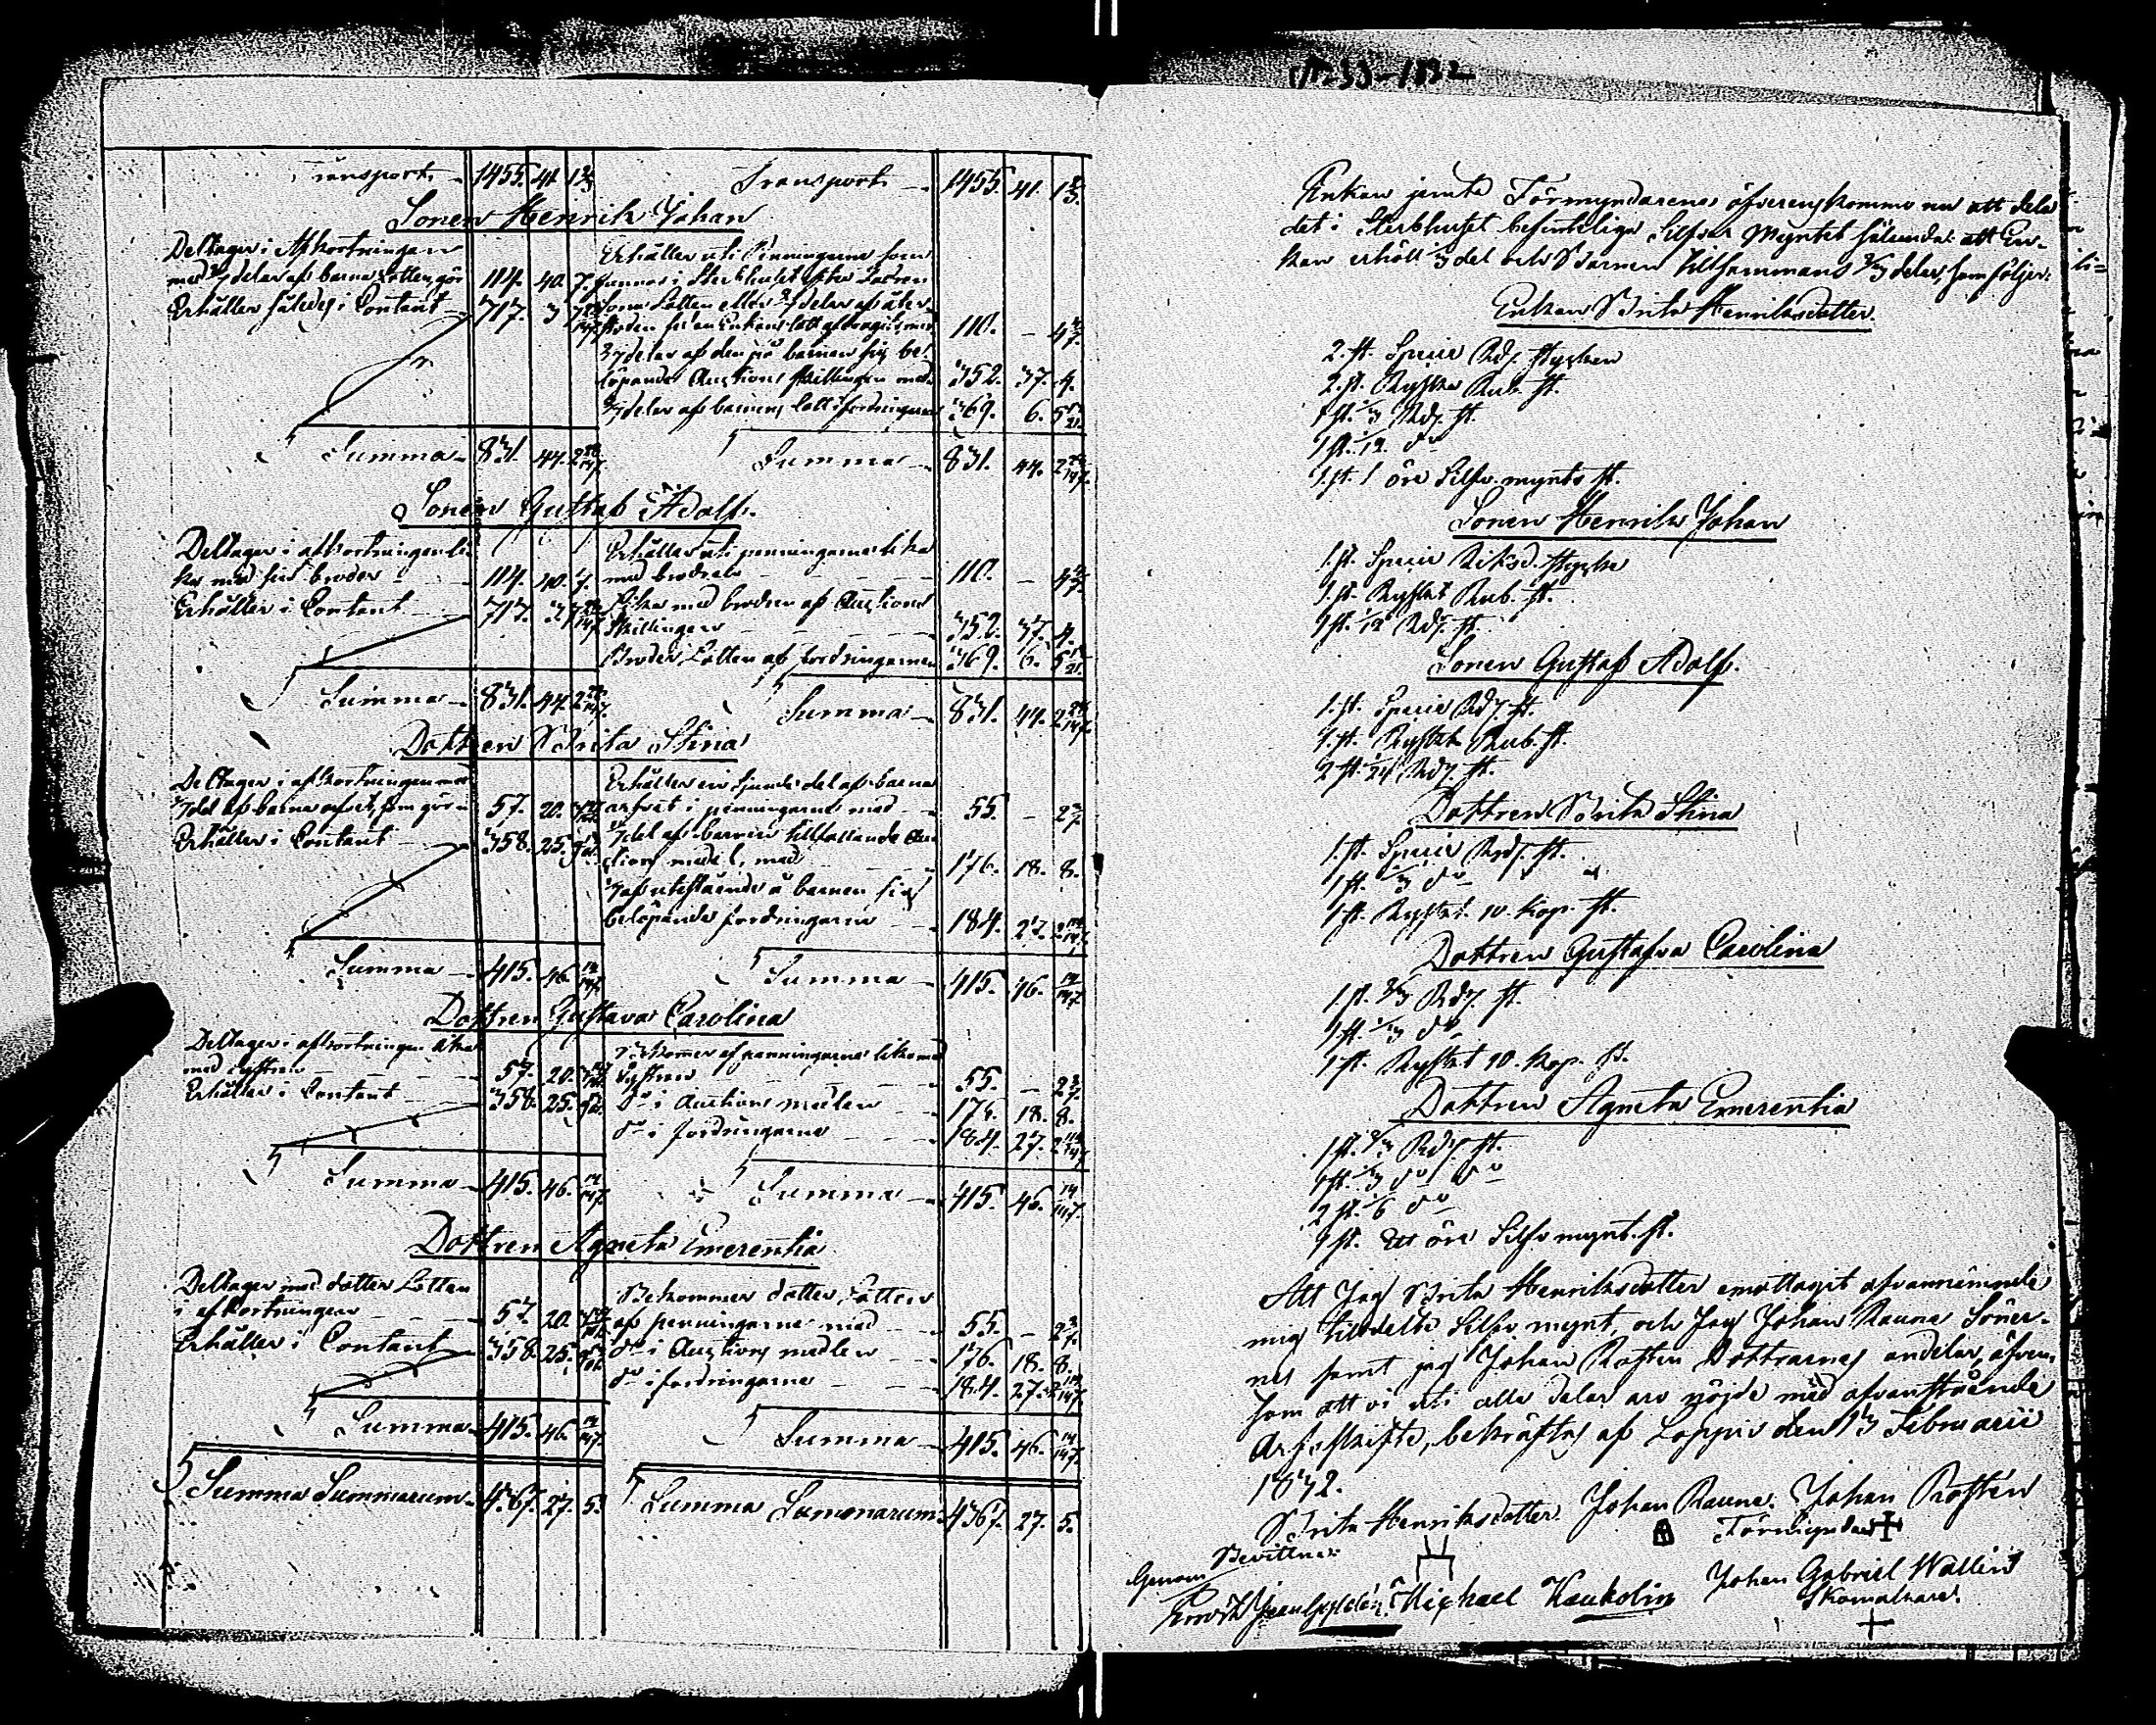 Transport 1455. 41. 1 2/3
Transport 1455. 41. 1 2/3.
Sonen Henrik Johan
Deltager i Afkortningen
med 2/7 delar af barna Lotten, gör 114. 40. 7.
Erhåller således i Contant 717. 3
Summa 831. 44. 2
Erhåller uti Penningarne som
funnos i Sterbhuset efter
Sone Lotten eller 2/7 delar af åter-
110. – 4 4/7.
2/7 delar af den på barnen sig be-
löpande Auctions skillingen med 352. 37. 4.
2/7 delar af barnens lott i fordringarne 369. 6. 5
Summa 831. 44. 2
Sonen Gustaf Adolf.
Deltager i afkortningen li-
ka med sin broder 114. 40. 7.
Erhåller i Contant 717. 3
Summa 831. 44. 2
Erhåller uti penningarne lika
med brodren 110. – 4 4/7.
Lika med brodren af Auctions
Skillingen 352. 37. 4.
Broders Lotten af fordringarne 369. 6. 5
Summa 831. 44. 2
Dottren Brita Stina
Deltager i afkortningen med
1/7 del af barna arfvet, som gör 57. 20.
Erhåller i Contant 358. 25.
Summa 415. 46. 14/147.
Erhåller en sjunde del af barna
arfvet i penningarne med 55. – 2 2/7.
1/7 del af barnen tillfallande Auc-
tions medel, med 176. 18. 8.
1/7 af utestående å barnen sig
belöpande fordringarne 184. 27. 2
Summa 415. 46. 14/147.
Dottren Gustava Carolina
Deltager i afkortningen lika
med systren 57. 20.
Erhåller i Contant 358. 25.
Summa 415. 46. 14/147.
Bekommer af penningarne lika med
Systren 55. – 2 2/7.
do i Auctions medlen 176. 18. 8.
do i fordringarne 184. 27. 2
Summa 415. 46. 14/147.
Dottren Agneta Emerentia
Deltager med dotter Lotten
i afkortningen 57. 20.
Erhåller i Contant 358. 25.
Summa 415. 46. 14/147.
Bekommer dotter Lotten
af penningarne med 55. – 2 2/7.
do i Auctions medlen 176. 18. 8.
do i fordringarne 184. 27. 2
Summa 415. 46. 14/147.
Summa Summarum 4367. 27. 5.
Summa Summarum 4367. 27. 5.
Enkan jemte Förmyndarene öfverenskommo nu att dela
det i Sterbhuset befintelige Silfver Myntet sålunda: att En-
kan erhöll 1/3 del och Barnen tillsammans 2/3 delar, som följer:
Enkan Brita Henriksdotter.
2. st. Specie Rds. stycken
2. st. Ryska Rub. st.
1 st. 1/3 Rds. st.
1 st. 1/12. do
1. st. 1 öre Silfv. mynts st.
Sonen Henrik Johan
1. st. Specie Riksd. stycke
1. st. Ryskt Rub. st.
1 st. 1/12 Rds. st.
Sonen Gustaf Adolf.
1. st. Specie Rds. st.
1. st. Ryskt Rub. st.
2 st. 1/24 Rds. st.
Dottren Brita Stina
1. st. Specie Rds. st.
1 st. 1/3 do
1 st. Ryskt. 10. Kop. st.
Dottren Gustafva Carolina
1 st. 2/3 Rds. st.
1 st. 1/3 do
1 st. Ryskt 10. Kop. st.
Dottren Agneta Emerentia
1 st. 2/3 Rds. st.
1 st. 1/3 do do
2 st. 1/6 do
1 st. Ett öre Silfv mynt. st.
Att Jag Brita Henriksdotter emottagit ofvannämnde
mig tilldelte Silfv mynt, och Jag Johan Rauna Söner-
nes samt jag Johan Rosten Dottrarnes andelar, äfven-
som att vi uti alla delar äro nöjde med ofvanstående
Arfskifte, bekräftas af Loppis den 13 Februarii
1832.
Brita Henriksdotter Johan Rauna. Johan Rostén
Förmyndare
Bevittna:
Michael Kaukolin Johan Gabriel Wallin
Skomakare.